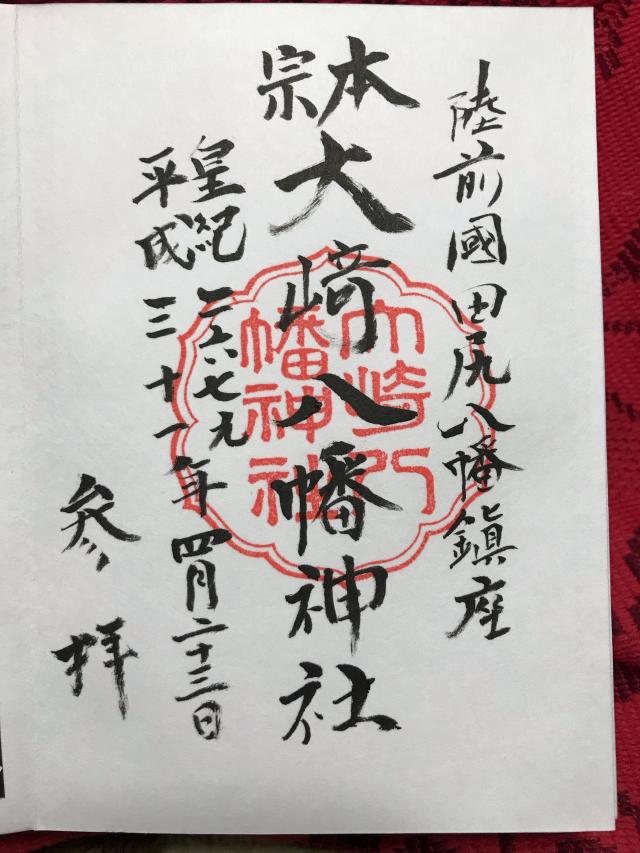 陸前國田尻八幡鎮座
本宗
大崎八幡神社
大崎八
幡神社
皇紀二六七九年四月二十三日
平成三十一
参拝